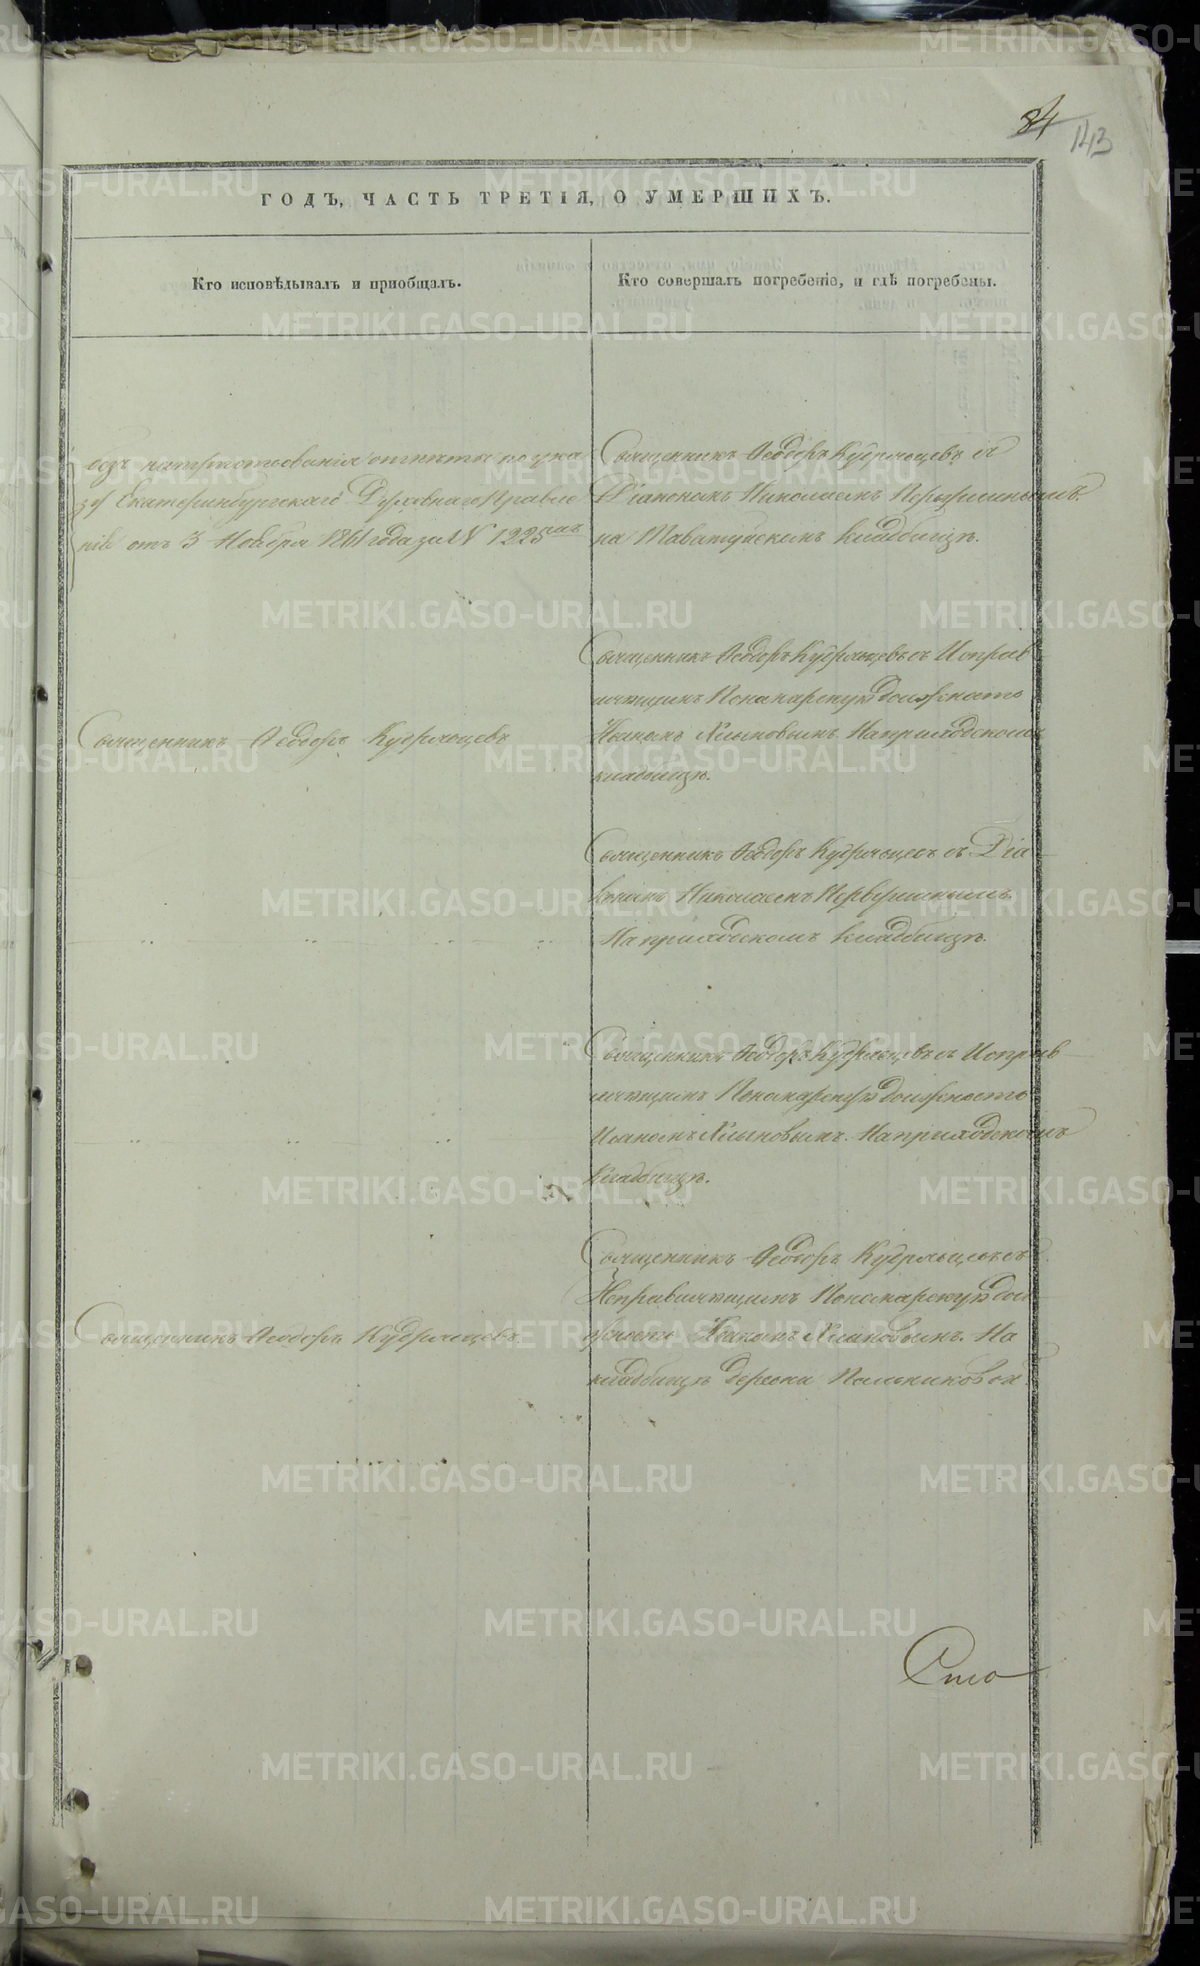 84
143
ГОДЪ, ЧАСТЬ ТРЕТІЯ, О УМЕРШИХЪ.
Кто исповѣдывалъ и приобщалъ.
Кто совершалъ погребеніе, и гдѣ погребены.
безъ напутствованія отпѣта по ука
зу Екатеринбургскаго Духовнаго Правле
нія отъ 3 Ноября 1861 года за № 1225
Священникъ Ѳеодоръ Кудрявцевъ съ
Діакономъ Николаемъ
на Таватуйскомъ кладбищѣ.
Священникъ Ѳеодоръ Кудрявцевъ
Священникъ Ѳеодоръ Кудрявцевъ съ Исправ
ляющимъ Пономарскую должность
Иваномъ Хлыновымъ На приходскомъ
кладбищѣ.
Священникъ Ѳеодоръ Кудрявцевъ съ Діа
кономъ Николаемъ
На приходскомъ кладбищѣ.
Священникъ Ѳеодоръ Кудрявцевъ съ Исправ
ляющимъ Пономарскую должность
Иваномъ Хлыновымъ. На приходскомъ
кладбищѣ.
Священникъ Ѳеодоръ Кудрявцевъ
Священникъ Ѳеодоръ Кудрявцевъ съ
Исправляющимъ Пономарскую дол
жность Иваномъ Хлыновымъ. На
кладбищѣ деревни Пальниковой.
METRIKI.GASO-URAL.RU